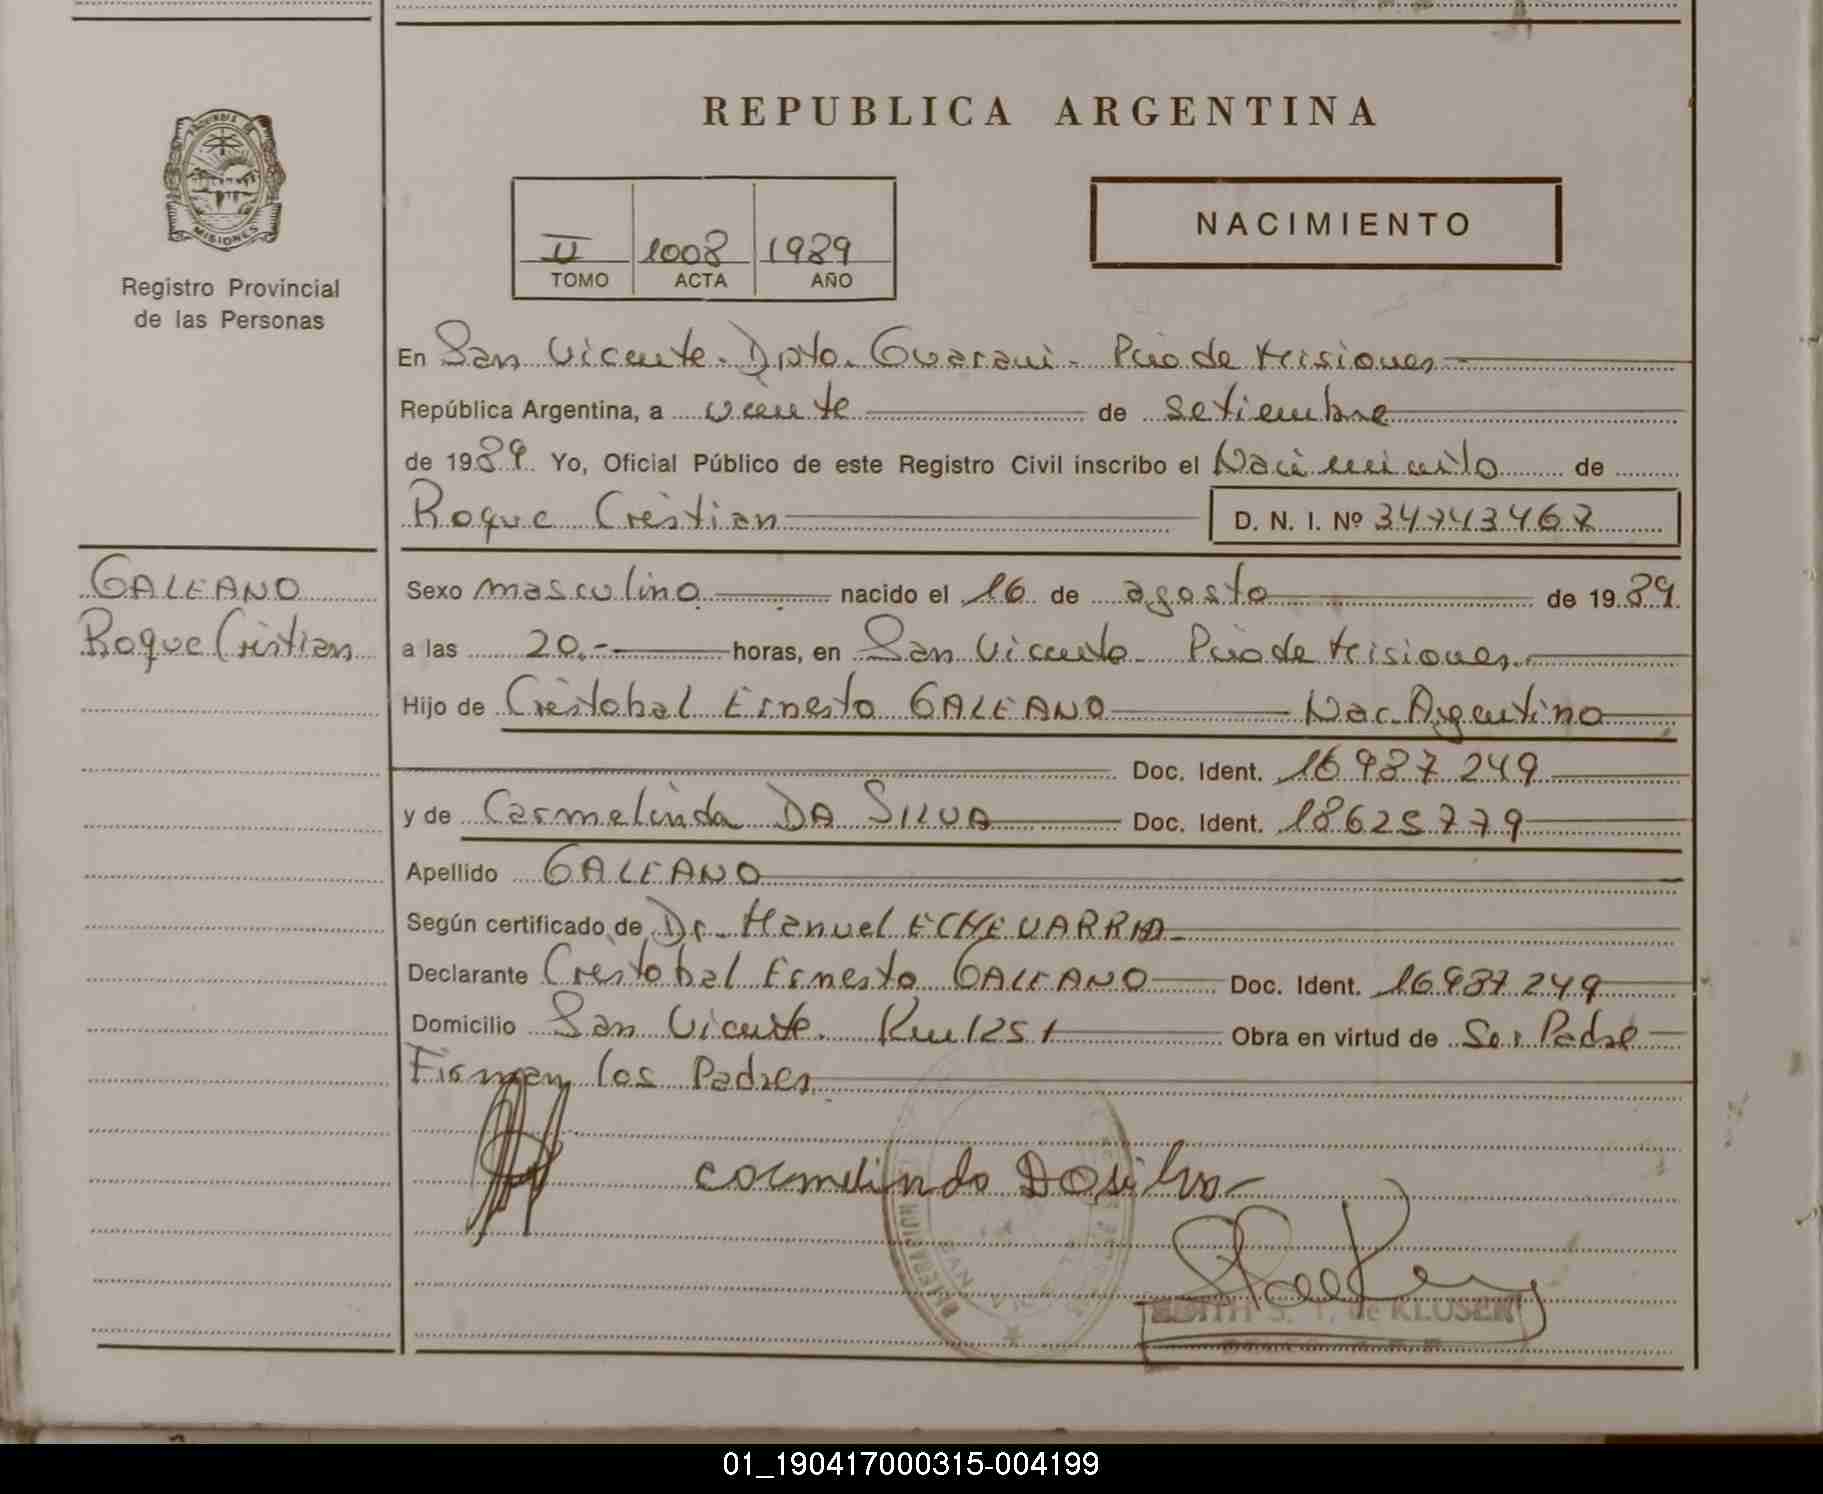 REPUBLICA ARGENTINA
PROVINCIA DE
MISIONES
Registro Provincial
de las Personas
NACIMIENTO
II 1008 1989
TOMO ACTA AÑO
En San Vicente - Dpto. Guarani - Pcia de Misiones
República Argentina, a veinte de setiembre
de 1989 Yo, Oficial Público de este Registro Civil inscribo el Nacimiento de
Roque Cristian D. N. I. Nº 34743467
GALEANO
Roque Cristian
Sexo masculino nacido el 16 de agosto de 1989
a las 20.- horas, en San Vicente Pcia de Misiones.
Hijo de Cristobal Ernesto GALEANO Nac. Argentino
Doc. Ident. 16.937.249
y de Carmelinda DA SILVA Doc. Ident. 18.625.779
Apellido GALEANO
Según certificado de Dr. Manuel ECHEVARRIA
Declarante Cristobal Ernesto GALEANO Doc. Ident. 16.937.249
Domicilio San Vicente. Km 1251 Obra en virtud de Ser Padre
Firman los Padres
carmelinda Dasilva
EDITH S. T. de KLUSEN
01_190417000315-004199